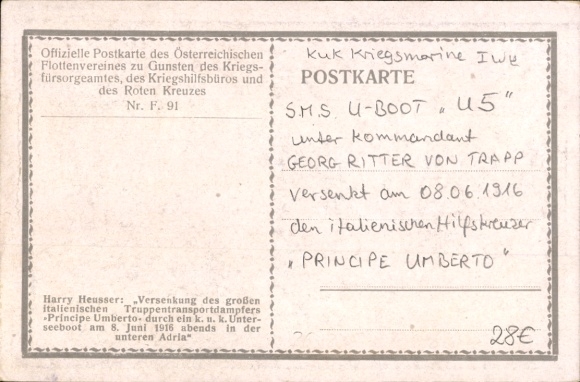 Offizielle Postkarte des Österreichischen
Flottenvereines zu Gunsten des Kriegs-
fürsorgeamtes, des Kriegshilfsbüros und
des Roten Kreuzes
Nr. F. 91
Harry Heusser: „Versenkung des großen
italienischen Truppentransportdampfers
»Principe Umberto« durch ein k. u. k. Unter-
seeboot am 8. Juni 1916 abends in der
unteren Adria“
KuK Kriegsmarine I WK
POSTKARTE
S.M.S. U-BOOT „U5"
unter Kommandant
GEORG RITTER VON TRAPP
versenkt am 08.06.1916
den italienischen Hilfskreuzer
„PRINCIPE UMBERTO"
28€